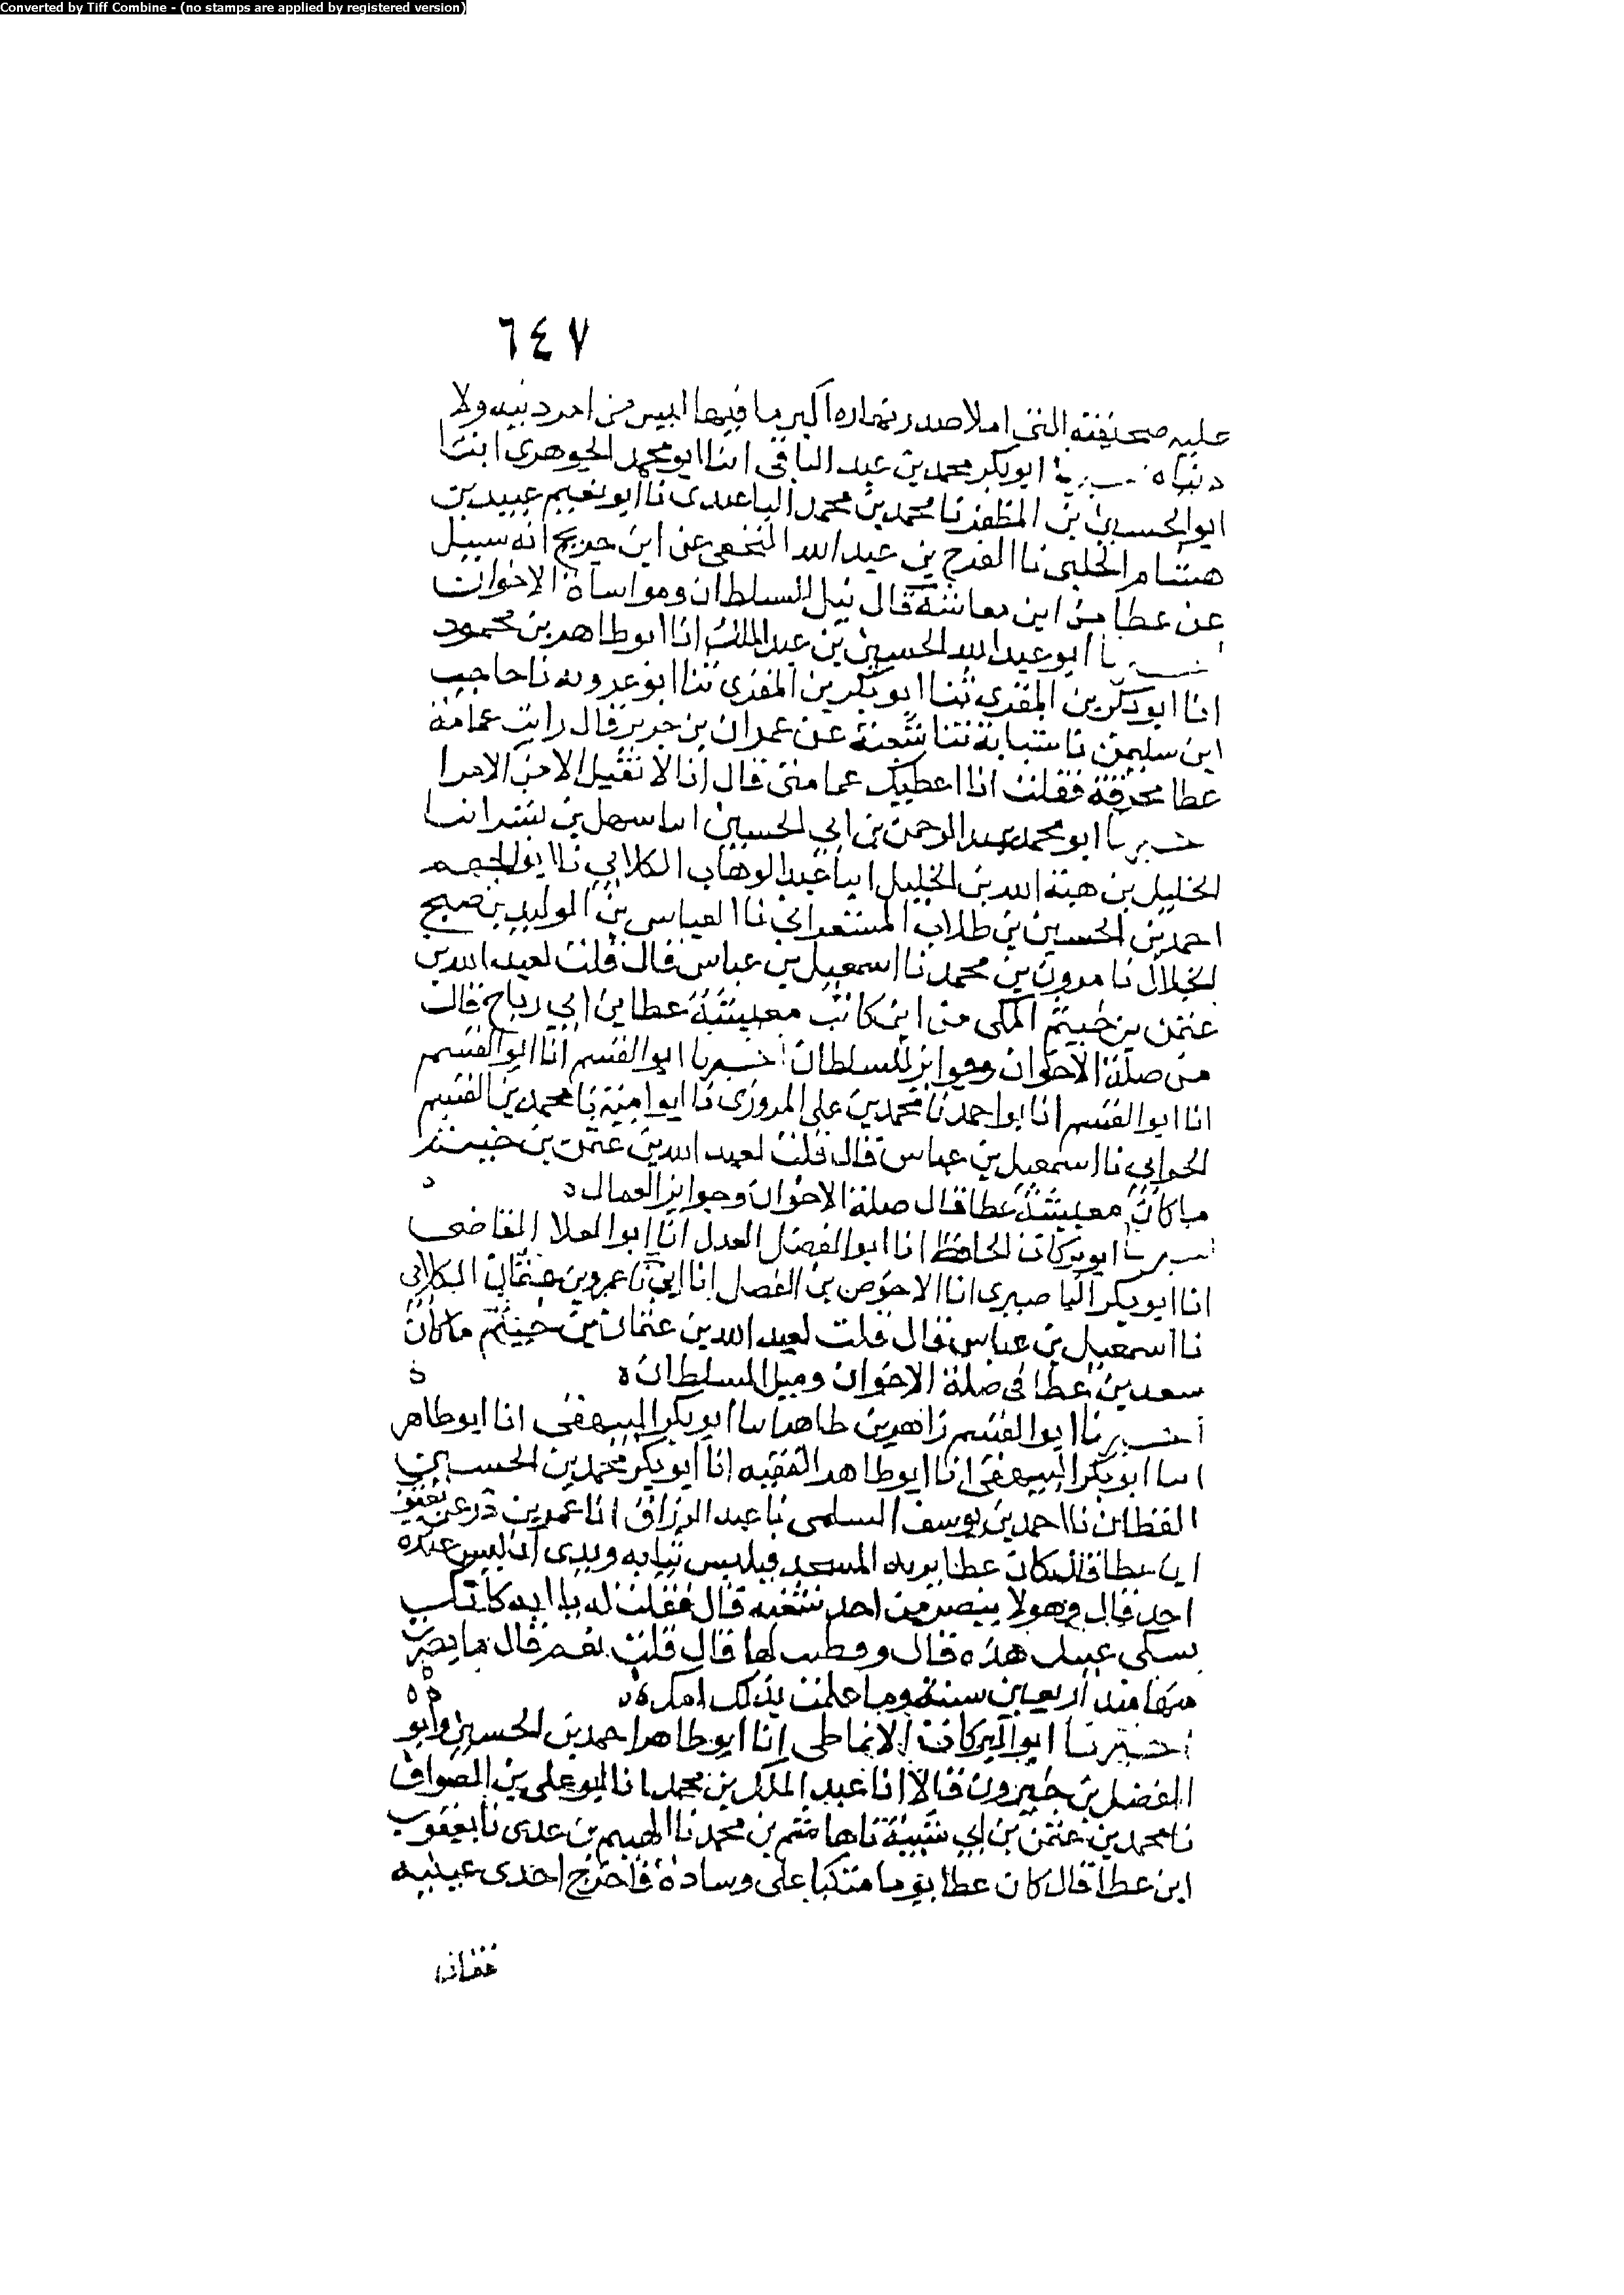 Converted by Tiff Combine - (no stamps are applied by registered version)
٦٤٧
عليه صحيفته التي املا صدر نهاره اكبر ما فيها ليس من امر دينه ولا
دنياه ابو بكر محمد بن عبد الباقي انا ابو محمد الجوهري ابنا
ابو الحسين بن المظفر نا محمد بن محمد الباغندي نا ابو نعيم عبيد بن
هشام الحلبي نا الفرج بن عبد الله النخعي عن ابن جريج انه سييل
عن عطا من اين معاشه قال نيل السلطان ومواساة الاخوان
ابو عبد الله الحسين بن عبد الملك انا ابو طاهر بن محمود
انا ابو بكر بن المقري ثنا ابو بكر بن المقري ثنا ابو عروبه نا حاجب
ابن سليمن نا شبابة ثنا شعبة عن عمران بن جرير قال رايت عمامة
عطا مخرقة فقلت انا اعطيك عمامتي قال انا لا نقبل الا من الامرا
ابو محمد عبد الرحمن بن ابي الحسين انبا سهل بن بشر انبا
الخليل بن هبة الله بن الخليل انبا عبد الوهاب الكلابي نا ابو الجهم
احمد بن الحسين بن طلاب المشغراني نا العباس بن الوليد بن صبح
الخلال نا مروان بن محمد نا اسمعيل بن عياش قال قلت لعبد الله بن
عثمن بن خثيم المكي من اين كانت معيشة عطا بن ابي رباح قال
من صلة الاخوان وجوايز السلطان اخبرنا ابو القسم انا ابو القسم
انا ابو القسم انا بو احمد نا محمد بن علي المروزي نا ابو امية نا محمد بن القسم
الحراني نا اسمعيل بن عياش قال قلت لعبد الله بن عثمن بن خيثم
ما كان معيشة عطا قال صلة الاخوان وجوايز العمال
ابو بركات الحافظ انا ابو الفضل العدل انا ابو العلا القاضي
انا ابو بكر البا صيري انا الاحوص بن الفضل انا ابي نا عمرو بن عثمان الكلابي
نا اسمعيل بن عياش قال قلت لعبد الله بن عثمان بن خيثم ما كان
سعد بن عطا في صلة الاخوان ونيل السلطان
اخبرنا ابو القسم زاهر بن طاهر انبا ابو بكر البيهقي انا ابو طاهر
انبا ابو بكر البيهقي انا ابو طاهر الفقيه انا ابو بكر محمد بن الحسين
القطان نا احمد بن يوسف السلمي نا عبد الرزاق انا عمر بن ذر عن يعقوب
ابن عطا قال كان عطا يريد المسجد فيلبس ثيابه ويري ان ليس عنده
احد قال وهو لا يبصر من احد شقيه قال فقلت له يا ابه كانك
تشتكي عينك هذه قال وفطنت لها قال قلت نعم قال ما يصرت
منها منذ اربعين سنة وما علمت بذلك امك
اخبرنا ابو البركات الانماطي انا ابو طاهر احمد بن الحسين وابو
الفضل بن خيرون قالا انا عبد الملك بن محمد انا ابو علي بن الصواف
نا محمد بن عثمن بن ابي شيبة نا هاشم بن محمد نا الهيثم بن عدي نا يعقوب
ابن عطا قال كان عطا يوما متكيا علي وسادة فاخرج احدي عينيه
فقال